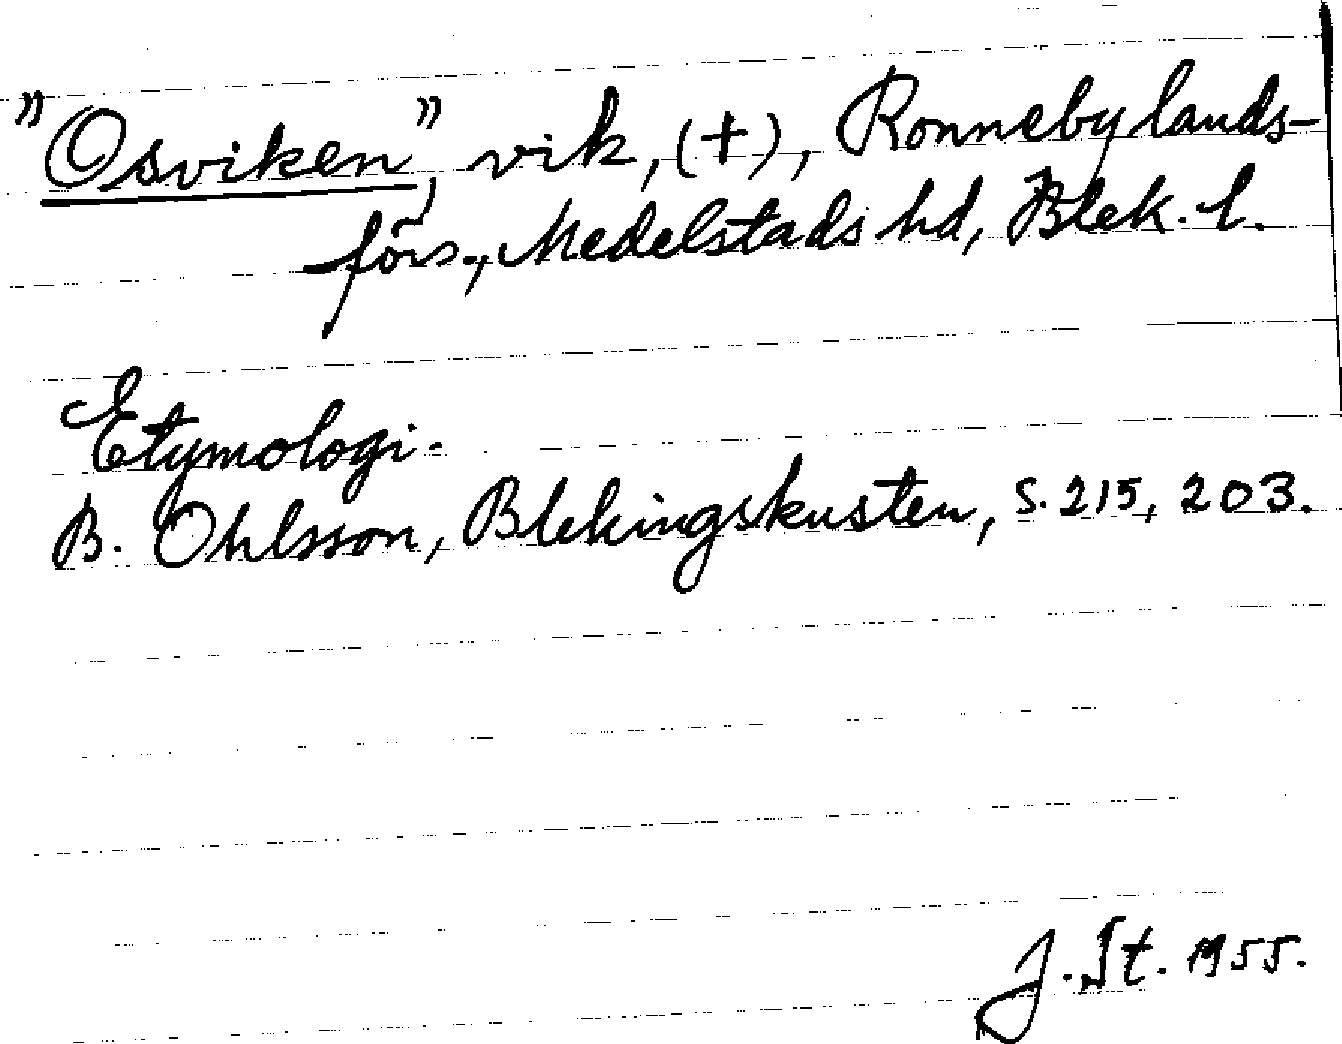 "Osviken", vik, (+), Ronneby lands-
förs., Medelstads hd, Blek. l.
Etymologi.
B. Ohlsson, Blekingskusten, s. 215, 203.
J. St. 1955.